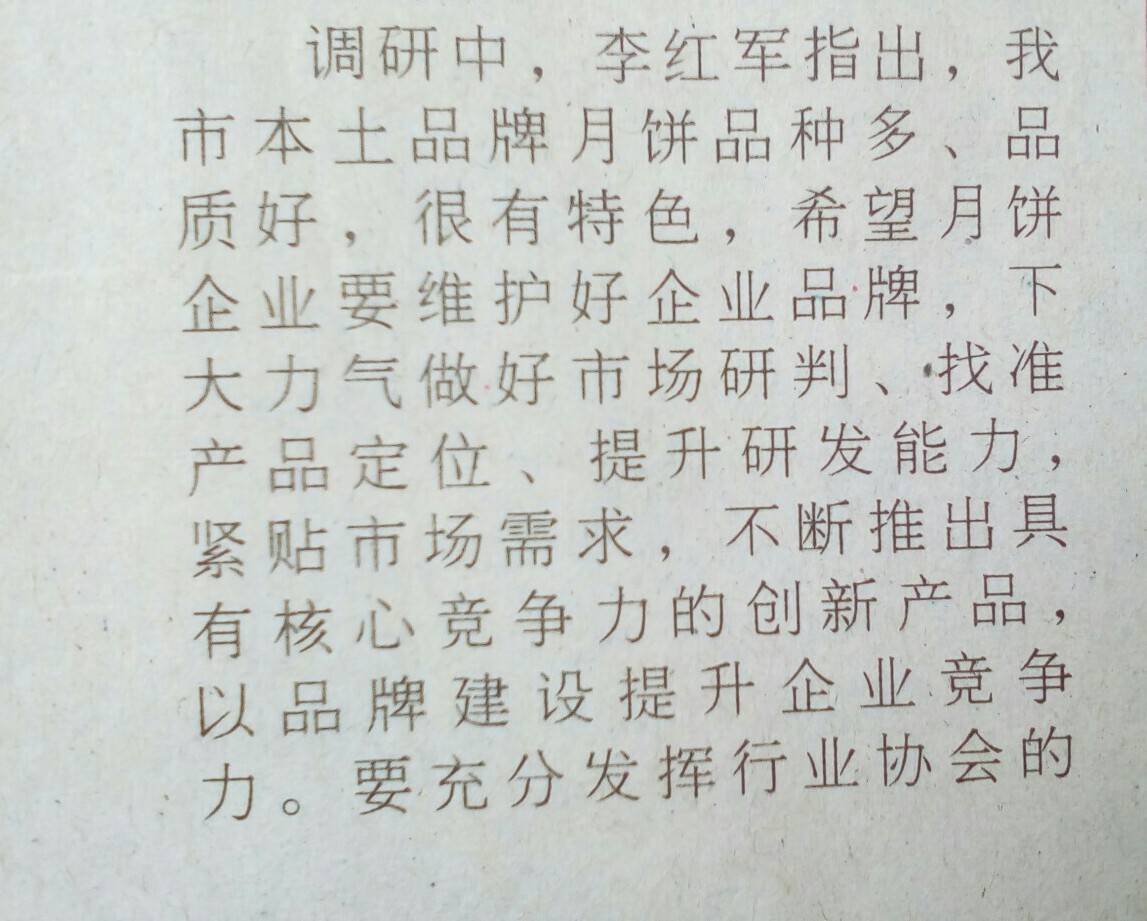 调研中，李红军指出，我
市本土品牌月饼品种多、品
质好，很有特色，希望月饼
企业要维护好企业品牌，下
大力气做好市场研判、找准
产品定位、提升研发能力，
紧贴市场需求，不断推出具
有核心竞争力的创新产品，
以品牌建设提升企业竞争
力。要充分发挥行业协会的